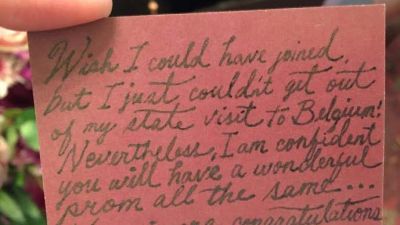 Wish I could have joined,
but I just couldn't get out
of my state visit to Belgium!
Nevertheless, I am confident
you will have a wonderful
prom all the same...
congratulations